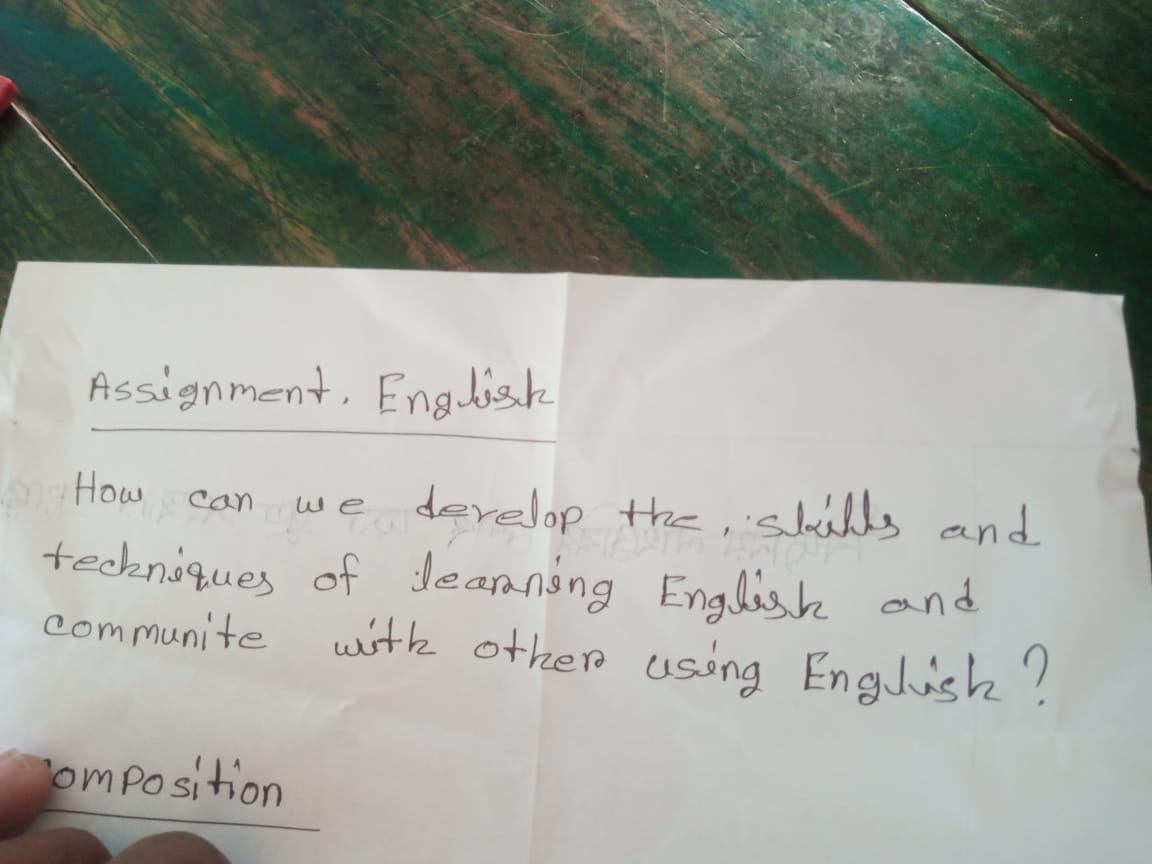 Assignment. English
How can we develop the, skills and
techniques of learning English and
communite with other using English?
omposition